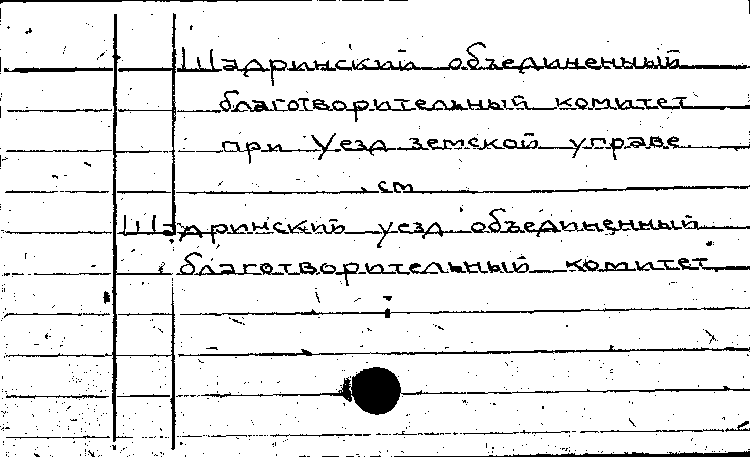 Шадринский объединенный
благотворительный комитет
при Уезд земской управе.
см
Шадринский уезд объединенный
благотворительный комитет.